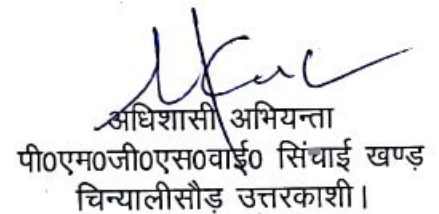 अधिशासी अभियन्ता
पी०एम०जी०एस०वाई० सिंचाई खण्ड़
चिन्यालीसौड़ उत्तरकाशी।